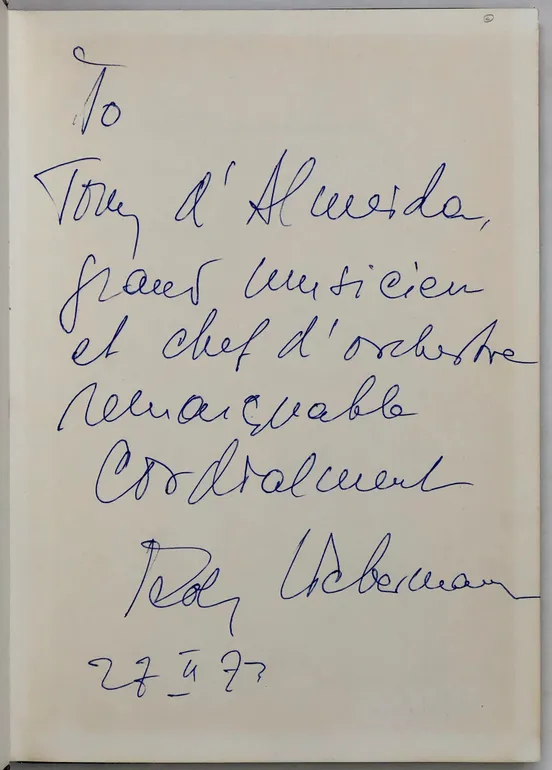 To
Tony d'Almeida,
grand musicien
et chef d'orchestre
remarquable
Cordialment
Rolf Liebermann
27 II 73